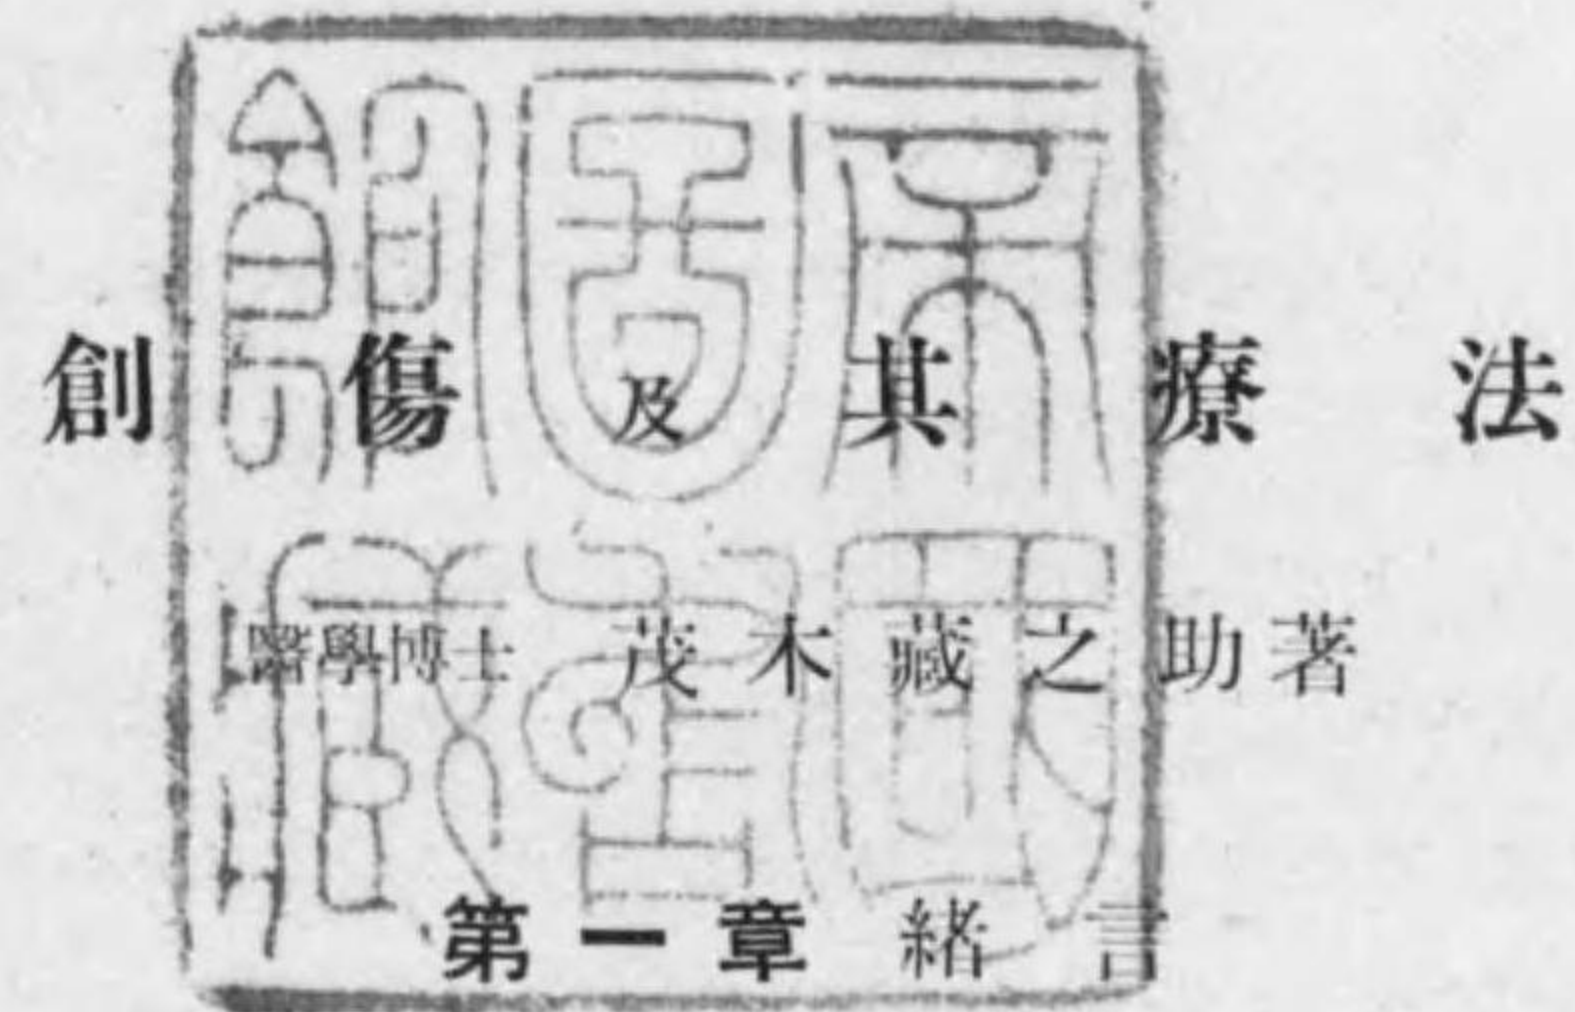 創傷及其療法
醫學博士 茂木藏之助著
第一章 緒言
帝國圖書館藏